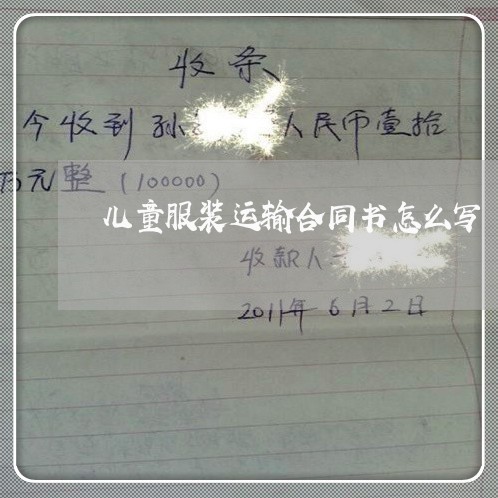 收条
今收到孙 人民币壹拾
万元整(100000)
儿童服装运输合同书怎么写
收款人
2011年6月2日